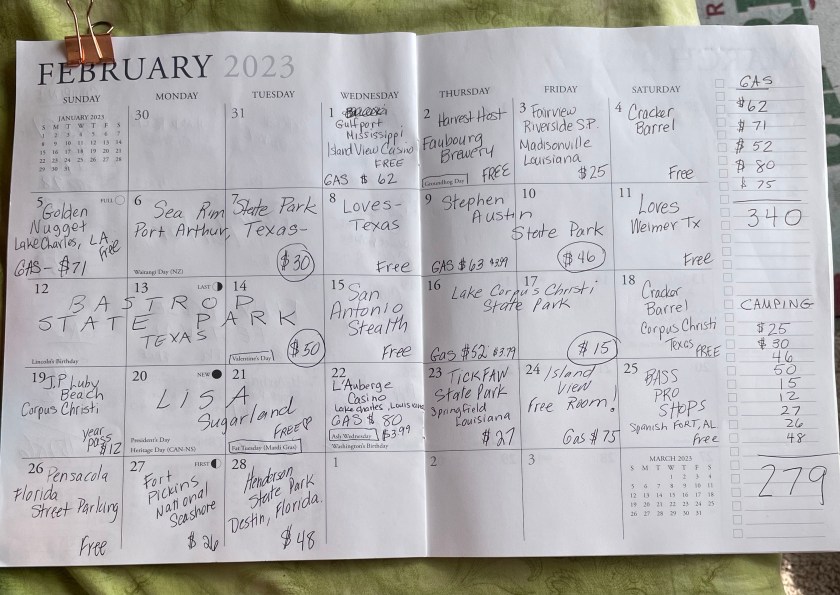 FEBRUARY 2023
SUNDAY MONDAY TUESDAY WEDNESDAY THURSDAY FRIDAY SATURDAY
JANUARY 2023
S M T W T F S
1 2 3 4 5 6 7
8 9 10 11 12 13 14
15 16 17 18 19 20 21
22 23 24 25 26 27 28
29 30 31
30
31
1
Gulfport
Mississippi
Island View Casino
FREE
GAS $62
2 Harvest Host
Faubourg
Brewery
FREE
Groundhog Day
3 Fairview
Riverside S.P.
Madisonville
Louisiana
$25
4 Cracker
Barrel
Free
5 FULL
Golden
Nugget
Lake Charles, LA
Free
GAS - $71
6 7
Sea Rim State Park
Port Arthur, Texas-
$30
Waitangi Day (NZ)
8 Loves-
Texas
Free
9 10
Stephen
Austin
State Park
GAS $63 $3.99
$46
11
Loves
Weimer Tx
Free
12 13 LAST 14
BASTROP
STATE PARK
TEXAS
$50
Lincoln's Birthday
Valentine's Day
15 San
Antonio
Stealth
Free
16 17
Lake Corpus Christi
State Park
Gas $52 $3.79
$15
18
Cracker
Barrel
Corpus Christi
Texas FREE
19 J.P. Luby
Beach
Corpus Christi
year
pass
$12
20 NEW 21
LISA
Sugarland
FREE♡
President's Day
Heritage Day (CAN-NS)
Fat Tuesday (Mardi Gras)
22
L'Auberge
Casino
Lake Charles, Louisiana
GAS $80
$3.99
Ash Wednesday
Washington's Birthday
23 TICKFAW
State Park
Springfield
Louisiana
$27
24 Island
View
Free Room!
Gas $75
25 BASS
PRO
SHOPS
Spanish FORT, AL
Free
26 Pensacola
Florida
Street Parking
Free
27 FIRST
Fort
Pickins
National
Seashore
$26
28
Henderson
State Park
Destin, Florida.
$48
1
2
3
MARCH 2023
S M T W T F S
1 2 3 4
5 6 7 8 9 10 11
12 13 14 15 16 17 18
19 20 21 22 23 24 25
26 27 28 29 30 31
GAS
$62
$71
$52
$80
$75
340
CAMPING
$25
$30
46
50
15
12
27
26
48
279